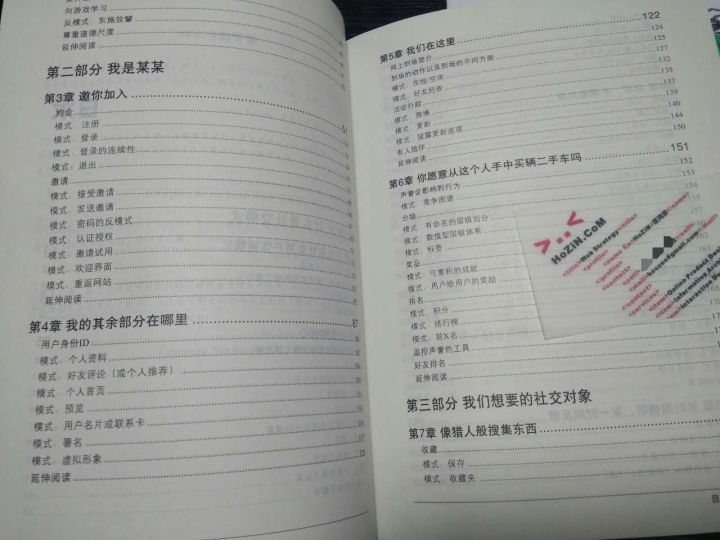 向游戏学习
反模式：东施效颦
尊重道德尺度
延伸阅读
第二部分 我是某某
第3章 邀你加入 51
约会
模式：注册
模式：登录
模式：登录的连续性
模式：退出
邀请
模式：接受邀请
模式：发送邀请
模式：密码的反模式
模式：认证授权
模式：邀请试用
模式：欢迎界面
模式：重返网站
延伸阅读
第4章 我的其余部分在哪里 87
用户身份ID
模式：个人资料
模式：好友评论（或个人推荐）
模式：个人首页
模式：预览
模式：用户名片或联系卡
模式：署名
模式：虚拟形象
延伸阅读
第5章 我们在这里 122
网上到场简介 124
到场的动作以及到场的不同方面 125
模式：在线/空闲 127
模式：好友列表 132
活动行踪 135
模式：微博 137
模式：更新 139
模式：披露更新选项 140
有人陪伴 144
延伸阅读 150
第6章 你愿意从这个人手中买辆二手车吗 151
声誉会影响到行为 152
模式：竞争图谱 153
分级 154
模式：有命名的层级划分
模式：数值型层级体系
模式：标签
奖品
模式：可累积的成就
模式：用户给用户的奖励
排名
模式：积分
模式：排行榜
模式：前X名
监控声誉的工具
好友排名
延伸阅读
第三部分 我们想要的社交对象
第7章 像猎人般搜集东西
收藏
模式：保存
模式：收藏夹
目
>:<
HoZiN.CoM
<title>Web Strategy</title>
<profile>
<contact>
</contact>
</profile>